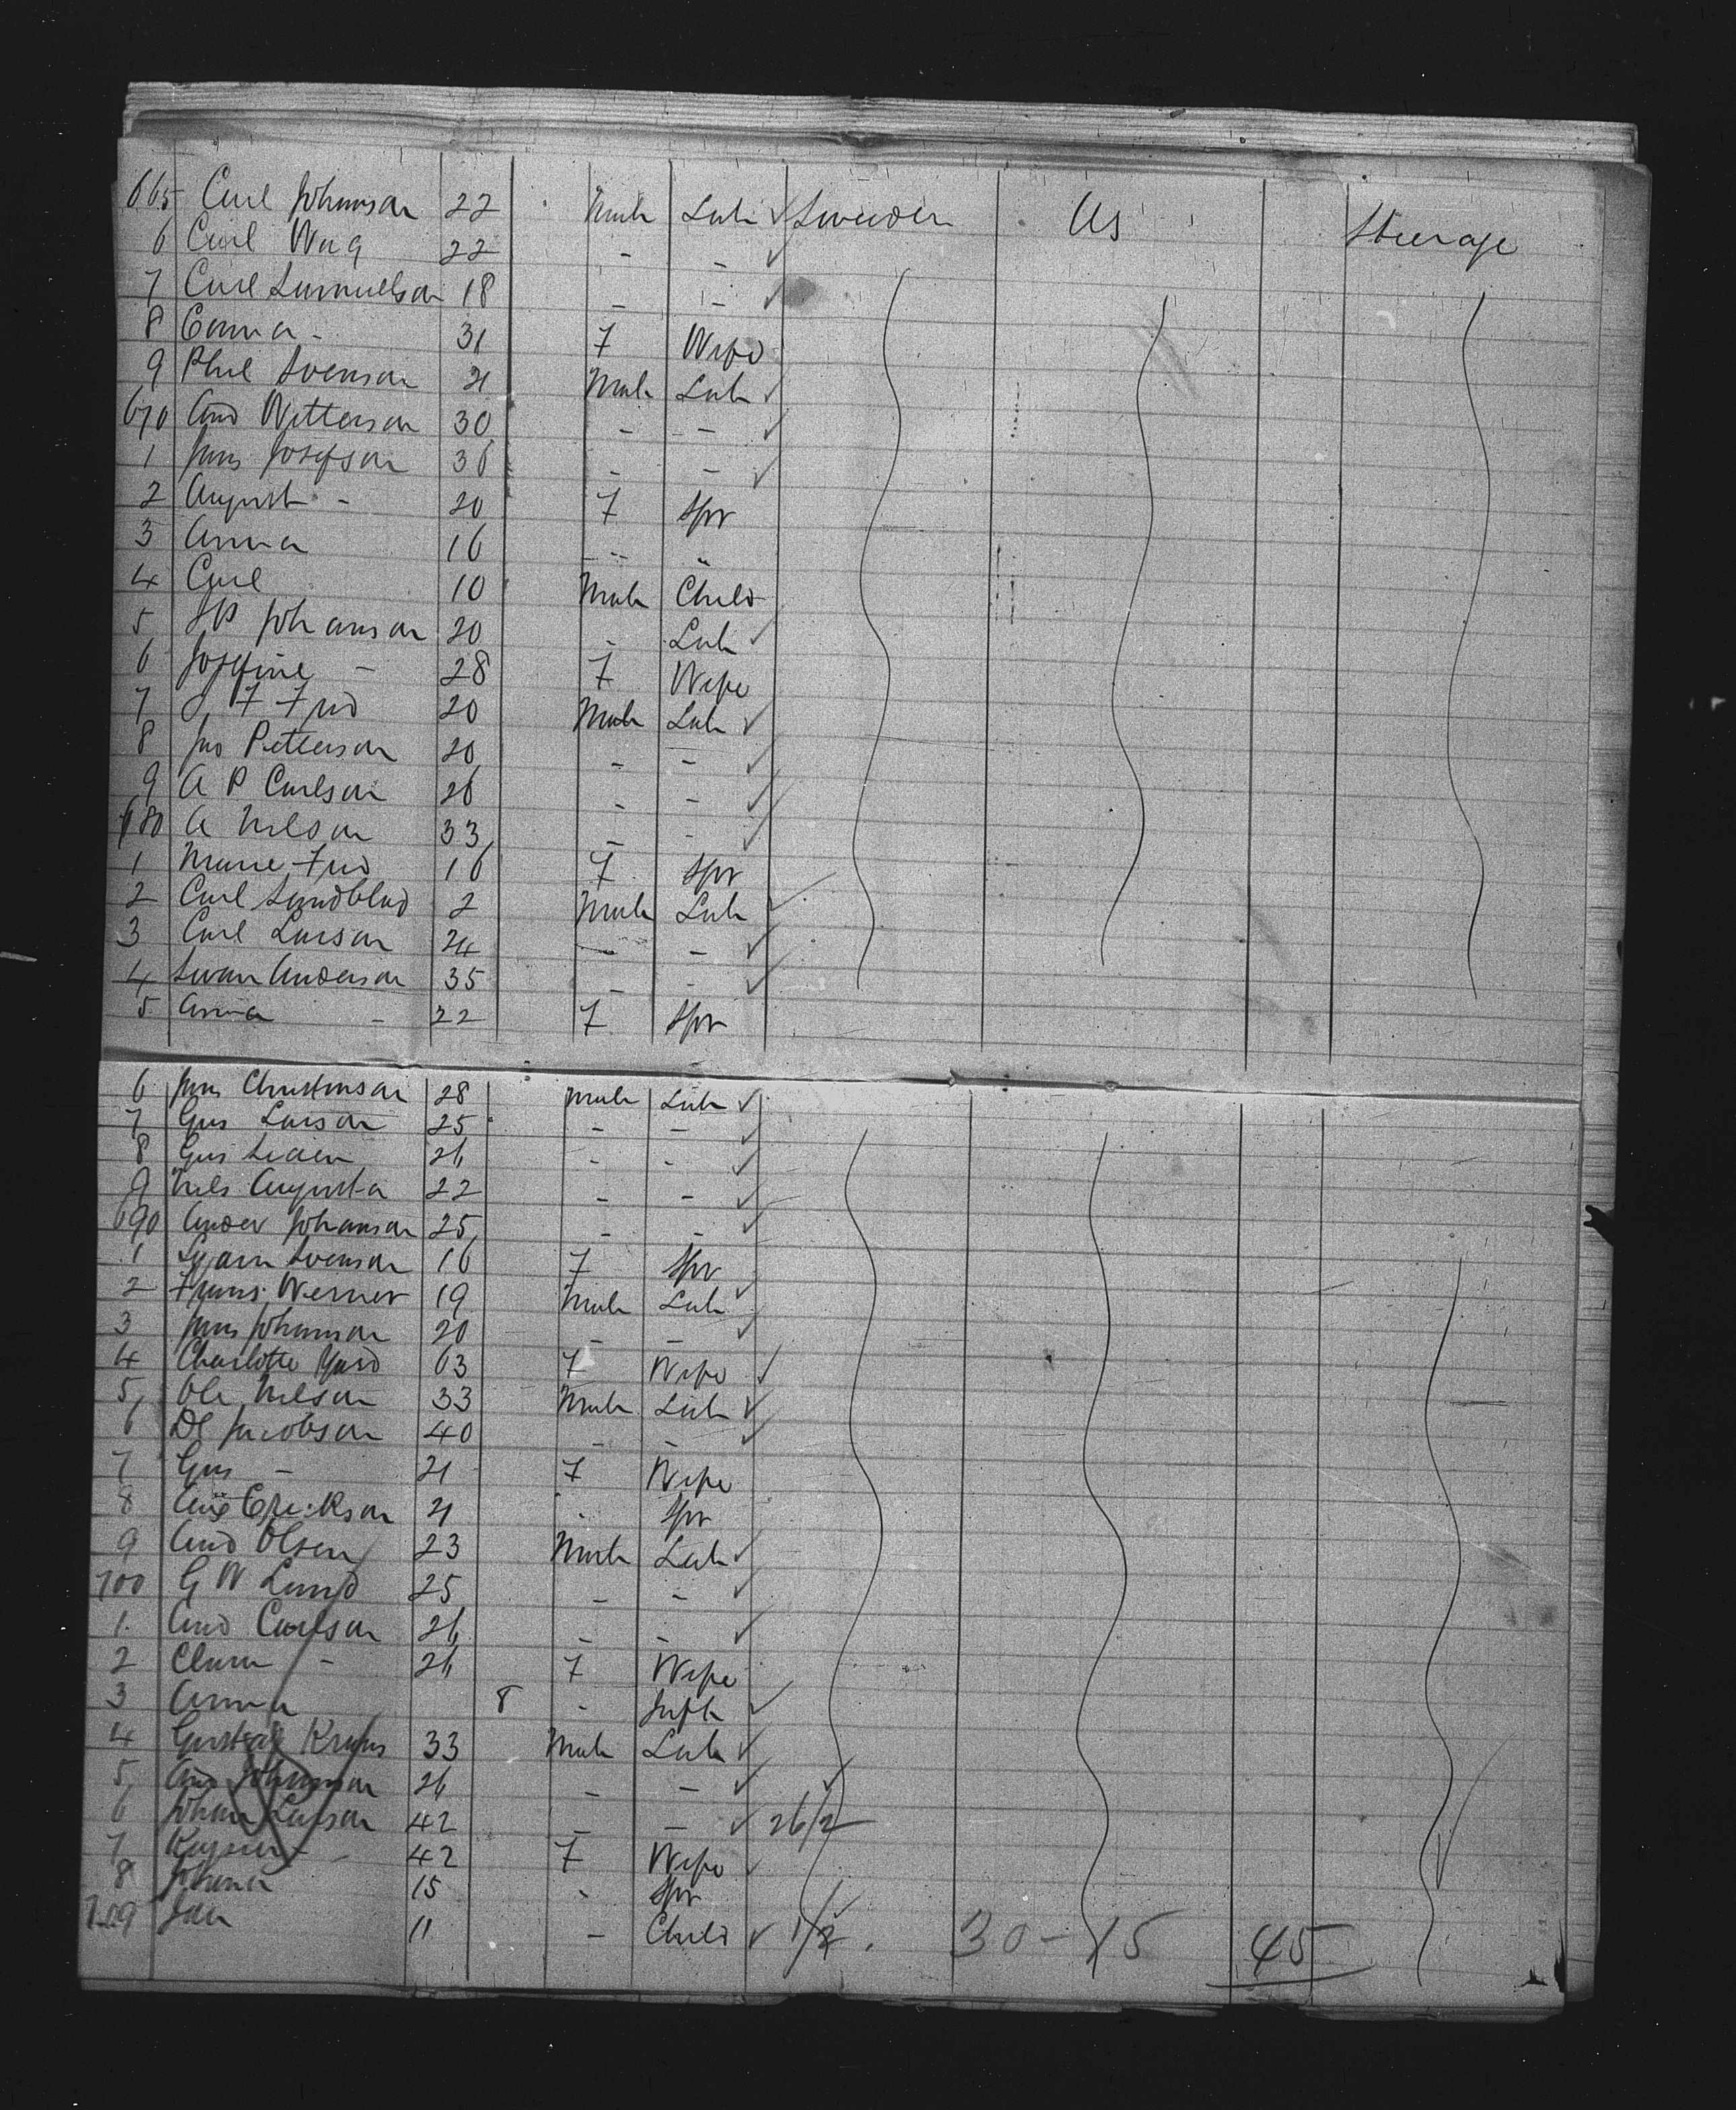 665 Carl Johnson 22 Male Lab ✓ Sweden US Steerage
6 Carl 22 - - ✓
7 Carl Samuelson 18 - - ✓
8 Emma - 31 F Wife
9 Svenson 21 Male Lab ✓
670 And Witterson 30 - - ✓
1 Jons Josefson 36 - - ✓
2 August - 20 F Spr
3 Anna 16 " "
4 Carl 10 Male Child
5 Johanson 20 - Lab ✓
6 Josefine - 28 F Wife
7 J F 20 Male Lab ✓
8 Jno Petterson 20 - - ✓
9 A P Carlson 26 - - ✓
680 A Nelson 33 - - ✓
1 Marie 16 F Spr
2 Carl Lundblad 2 Male Lab ✓
3 Carl Larson 24 - - ✓
4 Swan Anderson 35 - - ✓
5 Anna - 22 F Spr
6 Jons Christenson 28 Male Lab ✓
7 Gus Larson 25 - - ✓
8 Gus 26 - - ✓
9 Nels Augusta 22 - - ✓
690 Ander Johanson 25 - - ✓
1 Svenson 16 F Spr
2 Frans Werner 19 Male Lab ✓
3 Jons Johnson 20 - - ✓
4 Charlotte 63 F Wife ✓
5 Ole Nelson 33 Male Lab ✓
6 Jacobson 40 - - ✓
7 Gus - 21 F Wife
8 Erickson 21 - Spr
9 And Olsen 23 Male Lab ✓
700 G W Lund 25 - - ✓
1 And Carlson 26 - - ✓
2 Clara - 26 F Wife
3 Anna 8 - Inft ✓
4 Gustaf 33 Male Lab ✓
5 And Johnson 26 - - ✓
6 Johan Larson 42 - - ✓ 26/2
7 - 42 F Wife ✓
8 15 - Spr
709 11 - Child ✓ 1/2 . 30 - 15 45